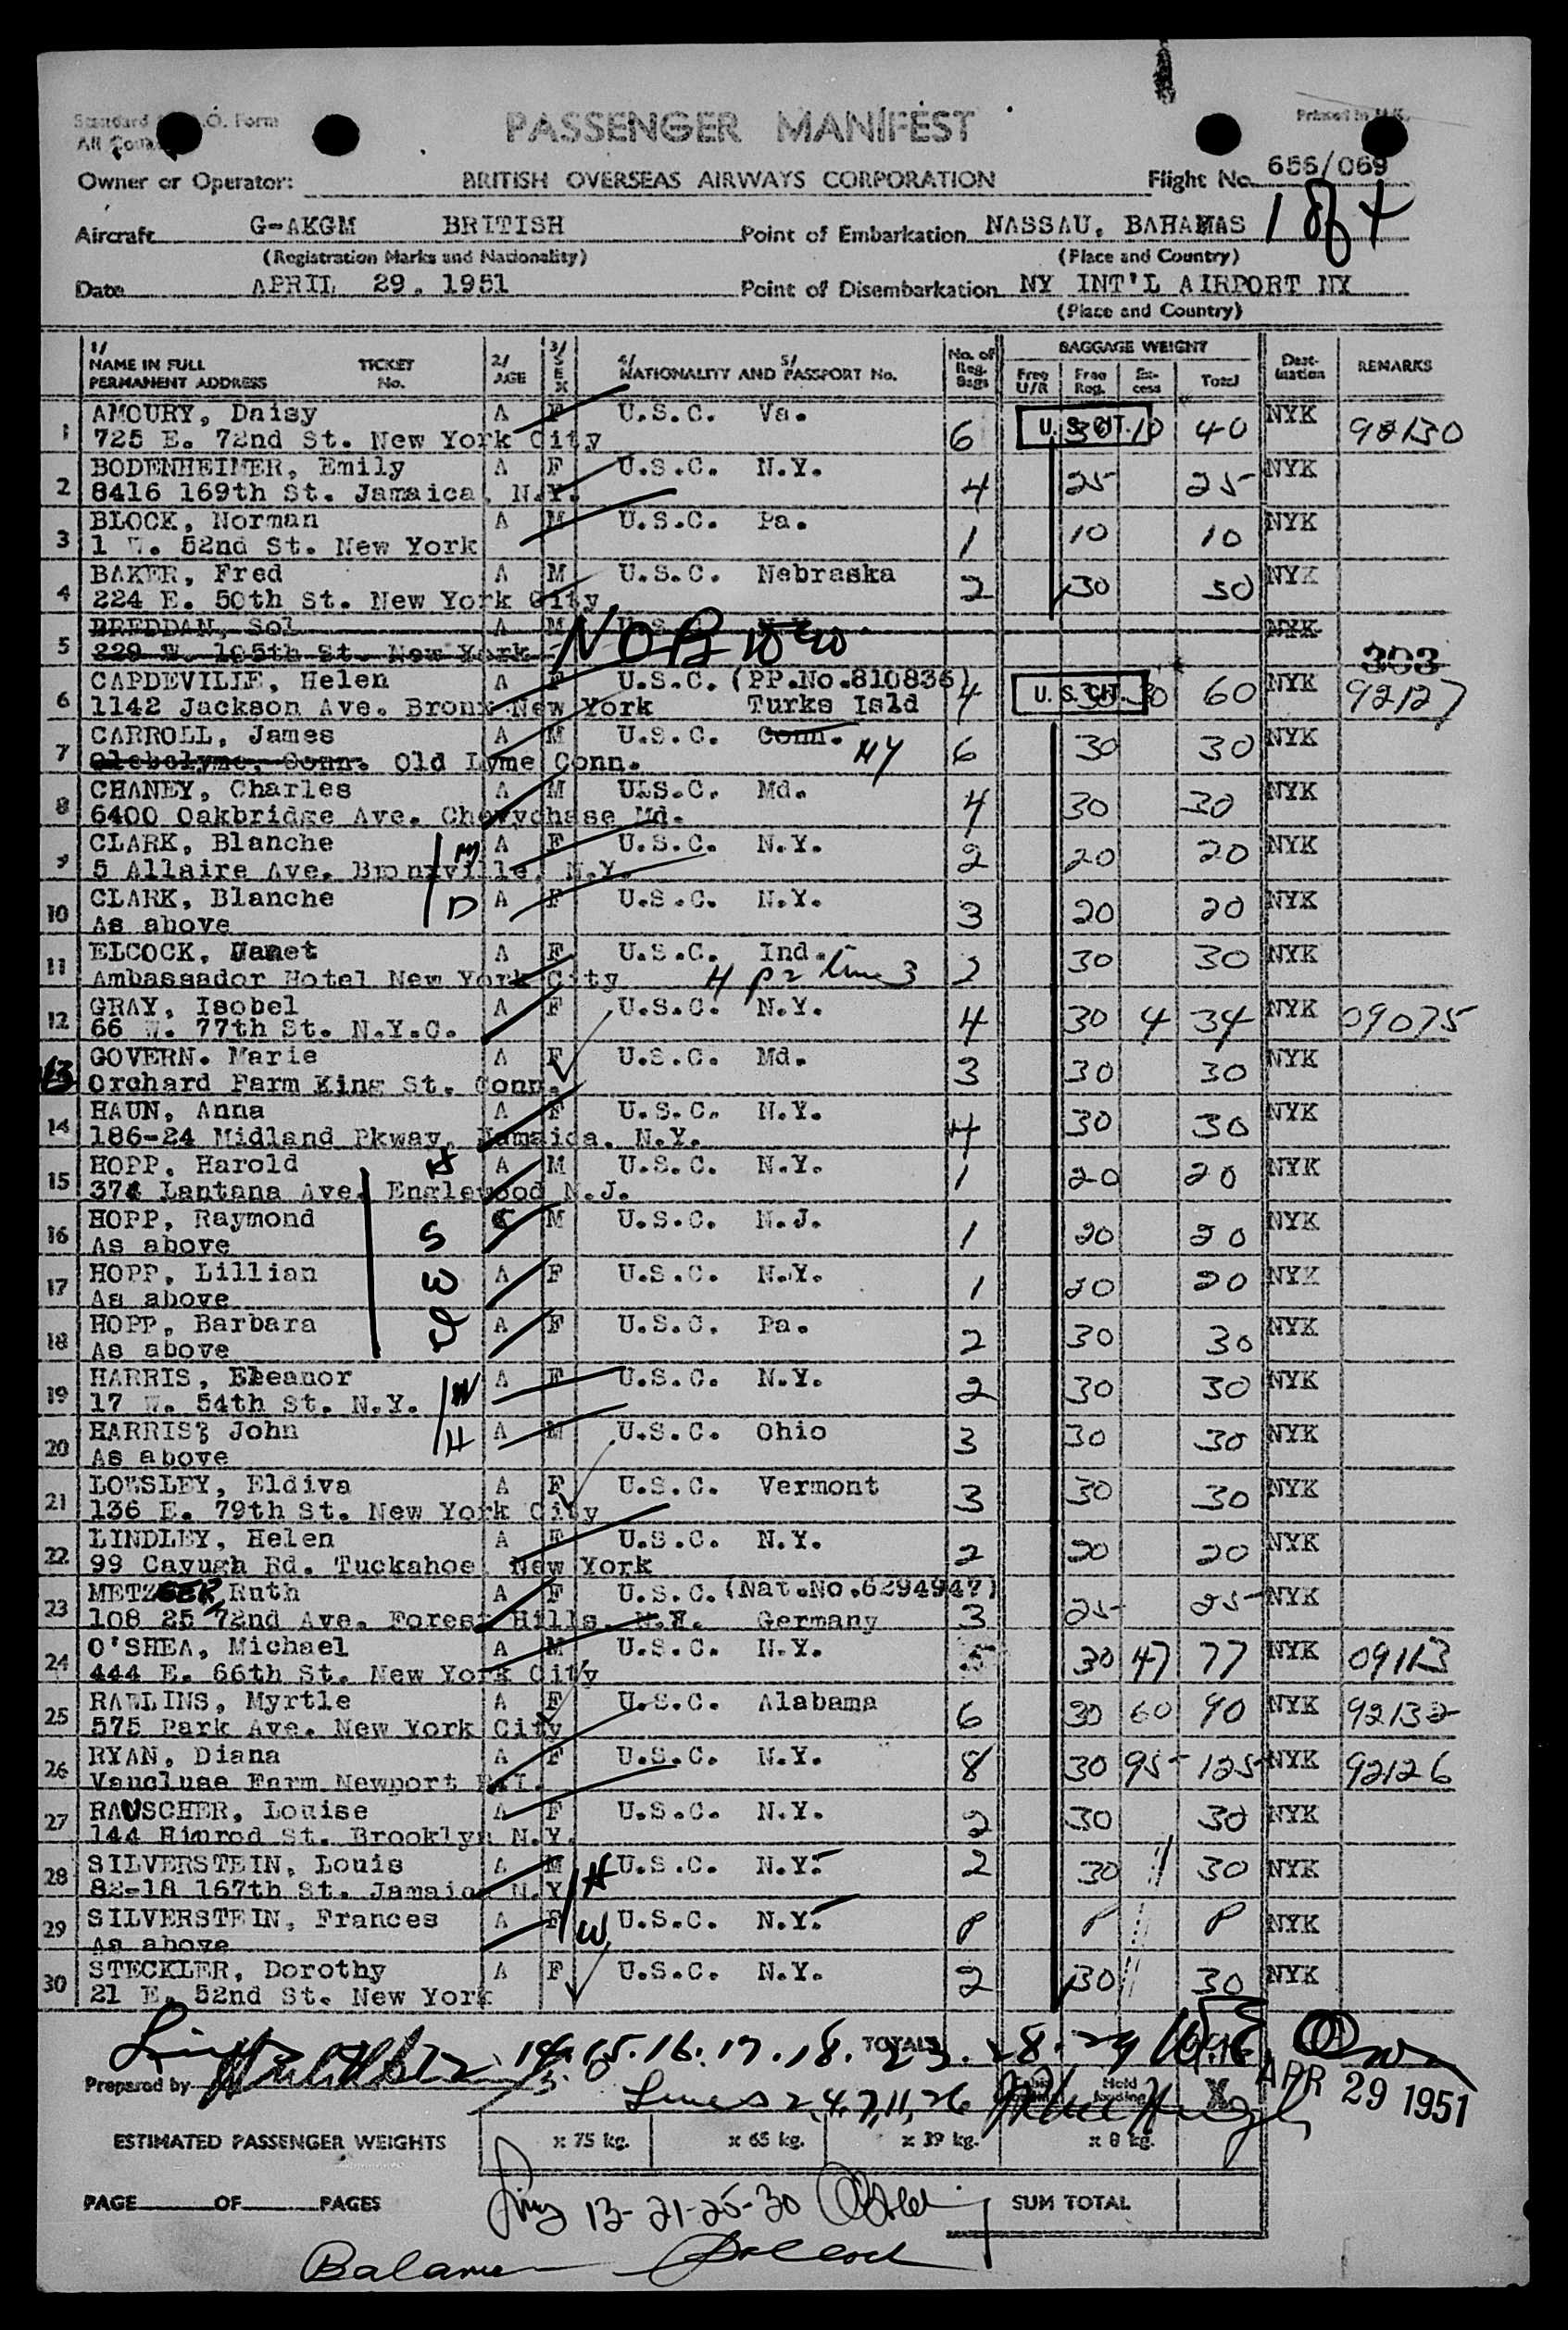 PASSENGER MANIFEST
Owner or Operator: BRITISH OVERSEAS AIRWAYS CORPORATION Flight No. 656/069
1 of 4
Aircraft G-AKGM BRITISH Point of Embarkation NASSAU, BAHAMAS
(Registration Marks and Nationality) (Place and Country)
Date APRIL 29, 1951 Point of Disembarkation NY INT'L AIRPORT NY
(Place and Country)
1/ NAME IN FULL PERMANENT ADDRESS TICKET No. 2/ AGE 3/ SEX 4/ 5/ NATIONALITY AND PASSPORT No. No. of Reg. Bags BAGGAGE WEIGHT Free U/R Free Reg. Ex-cess Total Dest-ination REMARKS
1 AMOURY, Daisy A F U.S.C. Va. 6 U.S. CIT. 30 10 40 NYK 92130
725 E. 72nd St. New York City
2 BODENHEIMER, Emily A F U.S.C. N.Y. 4 25 25 NYK
8416 169th St. Jamaica, N.Y.
3 BLOCK, Norman A M U.S.C. Pa. 1 10 10 NYK
1 W. 52nd St. New York
4 BAKER, Fred A M U.S.C. Nebraska 2 30 30 NYK
224 E. 50th St. New York City
5 BREDDAN, Sol A M NOB NYK
229 W. 105th St. New York 303
6 CAPDEVILIE, Helen A F U.S.C. (PP.No.810836) 4 U.S. CIT. 30 30 60 NYK 92127
1142 Jackson Ave. Bronx New York Turks Isld
7 CARROLL, James A M U.S.C. Conn. NY 6 30 30 NYK
Oldbolyme, Conn. Old Lyme Conn.
8 CHANEY, Charles A M U.S.C. Md. 4 30 30 NYK
6400 Oakbridge Ave. Chevychase Md.
9 CLARK, Blanche M A F U.S.C. N.Y. 2 20 20 NYK
5 Allaire Ave. Bronxville, N.Y.
10 CLARK, Blanche D A F U.S.C. N.Y. 3 20 20 NYK
As above
11 ELCOCK, Janet A F U.S.C. Ind. 2 30 30 NYK
Ambassador Hotel New York City H p2 line 3
12 GRAY, Isobel A F U.S.C. N.Y. 4 30 4 34 NYK 09075
66 W. 77th St. N.Y.C.
13 GOVERN. Marie A F U.S.C. Md. 3 30 30 NYK
Orchard Farm King St. Conn.
14 HAUN, Anna A F U.S.C. N.Y. 4 30 30 NYK
186-24 Midland Pkway, Jamaica. N.Y.
15 HOPP, Harold H A M U.S.C. N.Y. 1 20 20 NYK
374 Lantana Ave. Englewood N.J.
16 HOPP, Raymond S C M U.S.C. N.J. 1 20 20 NYK
As above
17 HOPP, Lillian W A F U.S.C. N.Y. 1 20 20 NYK
As above
18 HOPP, Barbara D A F U.S.C. Pa. 2 30 30 NYK
As above
19 HARRIS, Eleanor W A F U.S.C. N.Y. 2 30 30 NYK
17 W. 54th St. N.Y.
20 HARRIS, John H A M U.S.C. Ohio 3 30 30 NYK
As above
21 LOWSLEY, Eldiva A F U.S.C. Vermont 3 30 30 NYK
136 E. 79th St. New York City
22 LINDLEY, Helen A F U.S.C. N.Y. 2 20 20 NYK
99 Cayugh Rd. Tuckahoe, New York
23 METZGER, Ruth A F U.S.C. (Nat.No.6294947) 3 25 25 NYK
108 25 72nd Ave. Forest Hills, N.Y. Germany
24 O'SHEA, Michael A M U.S.C. N.Y. 5 30 47 77 NYK 09113
444 E. 66th St. New York City
25 RAWLINS, Myrtle A F U.S.C. Alabama 6 30 60 90 NYK 92132
575 Park Ave. New York City
26 RYAN, Diana A F U.S.C. N.Y. 8 30 95 125 NYK 92126
Vaucluse Farm Newport R.I.
27 RAUSCHER, Louise A F U.S.C. N.Y. 2 30 30 NYK
144 Himrod St. Brooklyn N.Y.
28 SILVERSTEIN, Louis A M H U.S.C. N.Y. 2 30 30 NYK
82-18 167th St. Jamaica N.Y.
29 SILVERSTEIN, Frances A F W U.S.C. N.Y. P P P NYK
As above
30 STECKLER, Dorothy A F U.S.C. N.Y. 2 30 30 NYK
21 E. 52nd St. New York
14. 15. 16. 17. 18. TOTALS 23. 28. 29
Prepared by Lines 2, 4, 7, 11, 26 APR 29 1951
ESTIMATED PASSENGER WEIGHTS x 75 kg. x 65 kg. x 39 kg. x 8 kg.
PAGE OF PAGES 13-21-25-30 SUM TOTAL
Balance